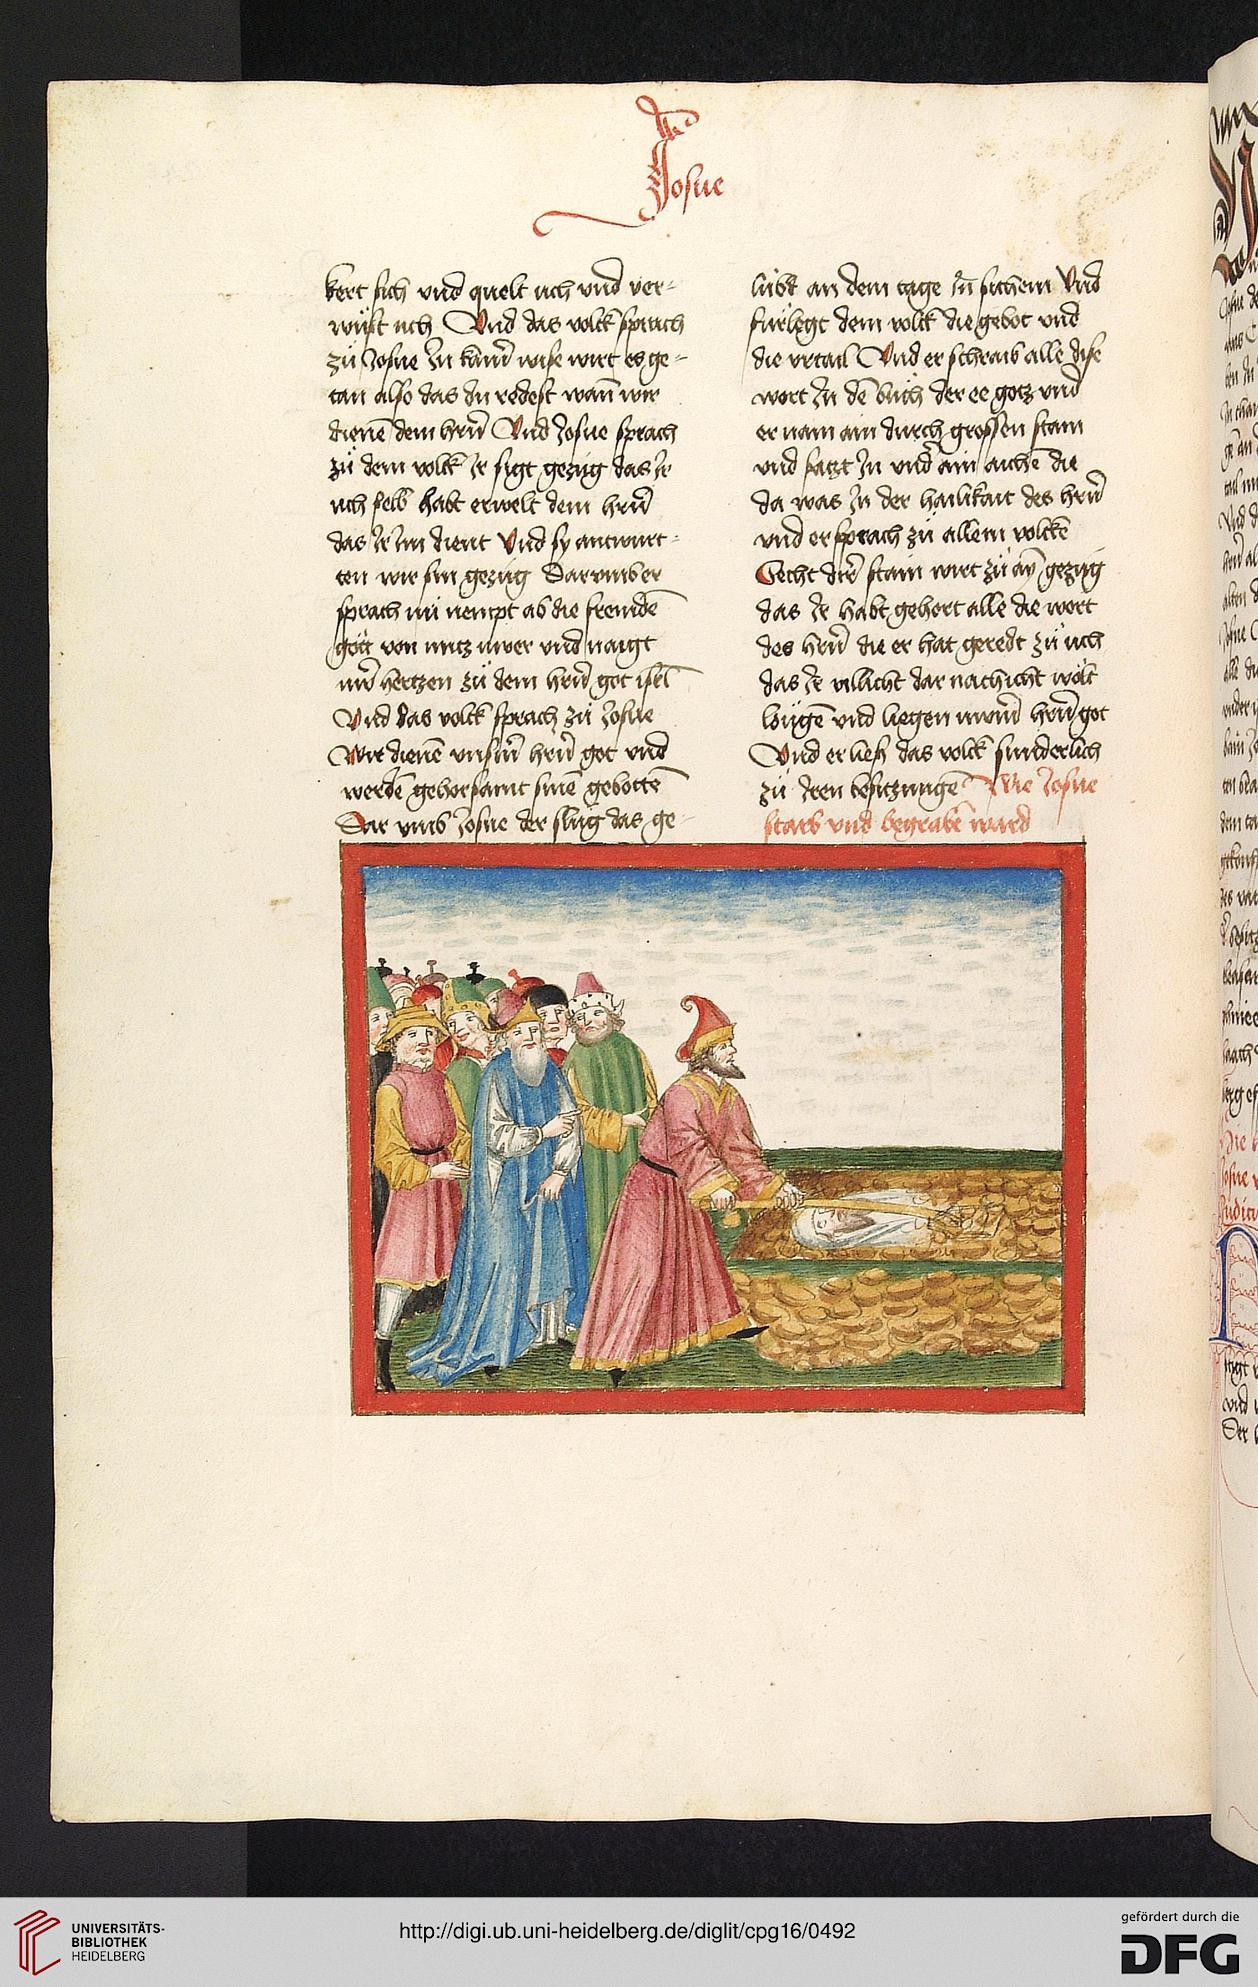 Josue
kert sich vnd quelt uch vnd ver-
wüst uch Vnd das volck sprach
zu Josue In kainr wise wirt es ge-
tan also das du redest wann wir
dienē dem hrn̄ Vnd Josue sprach
zü dem volck Ir sigt gezüg das Ir
uch selb habt erwelt dem hrn̄
das Ir Im dient Vnd sy antwurt-
ten wir sin gezüg Darumb er
sprach nü nempt ab die fremdē
gött von mitz uwer vnd naigt
uwr̄ hertzen zü dem hrn̄ got isr̄l
Vnd das volck sprach zü Josue
Wir dienē vnsm̄ hrn̄ got vnd
werdē gehorsamt sinē gebottē
Dar vmb Josue der slüg das ge-
lübt an dem tage In sichem Vnd
fürlegt dem volck die gebot vnd
die vrtail Vnd er schraib alle dise
wort In dē büch der ee gotz vnd
er nam ain durch grossen stain
vnd satzt In vnd̄ ain aichē die
da was In der hailikait des hrn̄
vnd er sprach zü allem volckē
Secht dirr̄ stain wirt zü ay̅ gezüg
das Ir habt gehort alle die wort
des hrn̄ die er hat geredt zü uch
das Ir villicht dar nach icht wölt
löügē vnd liegen uwrm̄ hrn̄ got
Vnd er liess das volck sunderlich
zü Iren besitzungē Wie Josue
starb vnd begrabē ward
UNIVERSITÄTS-
BIBLIOTHEK
HEIDELBERG
http://digi.ub.uni-heidelberg.de/diglit/cpg16/0492
gefördert durch die
DFG